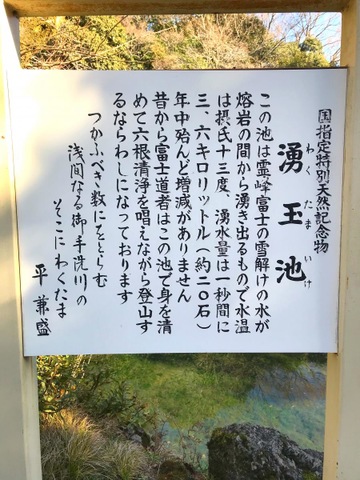 国指定特別天然記念物
わく たま いけ
湧玉池
この池は霊峰富士の雪解けの水が
熔岩の間から湧き出るもので水温
は摂氏十三度、湧水量は一秒間に
三、六キロリットル(約二〇石)
年中殆んど増減がありません
昔から富士道者はこの池で身を清
めて六根清浄を唱えながら登山す
るならわしになっております
つかふべき数にをとらむ
浅間なる御手洗川の
そこにわくたま
平兼盛